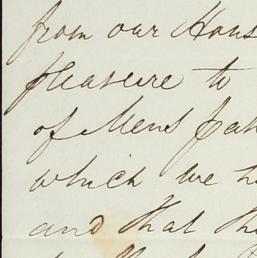 from our Hous
pleasure to
of Mens
which we h
and that th